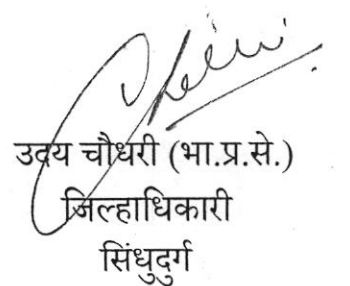 उदय चौधरी (भा.प्र.से.)
जिल्हाधिकारी
सिंधुदुर्ग